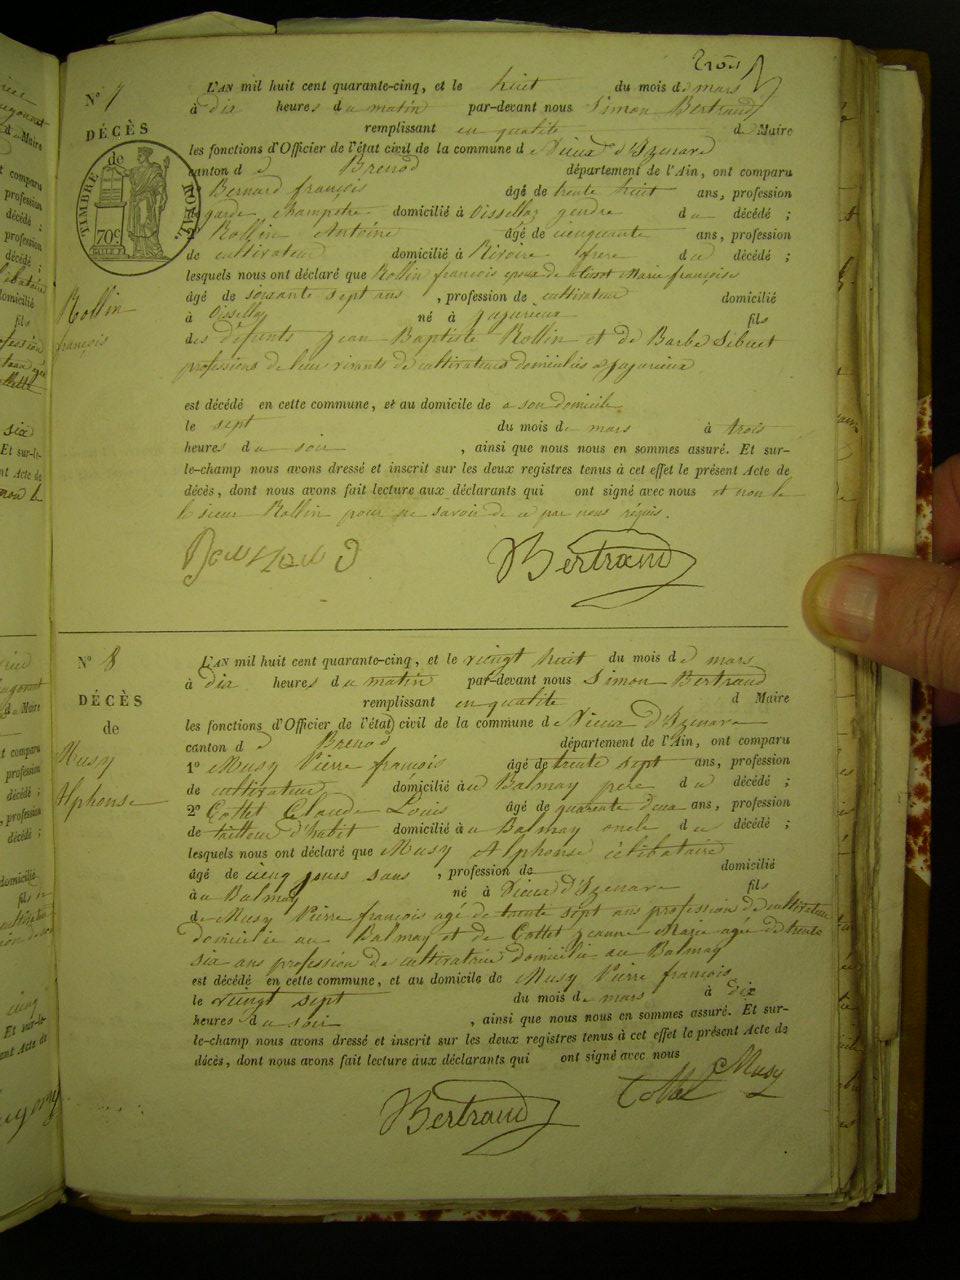 trois
N° 7
DÉCÈS
de
TIMBRE ROYAL
70c
Rollin
françois
L'AN mil huit cent quarante-cinq, et le huit du mois de mars
à dix heures du matin par-devant nous Simon Bertrand
remplissant en qualité de Maire
les fonctions d'Officier de l'état civil de la commune de Vieux d'Izenave
canton de Brenod département de l'Ain, ont comparu
Bernard françois âgé de trente huit ans, profession
garde champetre domicilié à Oisselaz gendre du décédé ;
Rollin Antoine âgé de cinquante ans, profession
de cultivateur domicilié à Rivoire frere du décédé ;
lesquels nous ont déclaré que Rollin françois epoux de Marie françoise
âgé de soixante sept ans , profession de cultivateur domicilié
à Oisselaz né à Jujurieux fils
des défunts Jean Baptiste Rollin et de Barbe Sibuet
professions de leur vivants de cultivateurs domiciliés a Jujurieux
est décédé en cette commune, et au domicile de a son domicile
le sept du mois de mars à trois
heures du soir , ainsi que nous nous en sommes assuré. Et sur-
le-champ nous avons dressé et inscrit sur les deux registres tenus à cet effet le présent Acte de
décès, dont nous avons fait lecture aux déclarants qui ont signé avec nous et non le
le sieur Rollin pour ne savoir de ce par nous réquis.
Bertrand
N° 8
DÉCÈS
de
Musy
Alphonse
L'AN mil huit cent quarante-cinq, et le vingt huit du mois de mars
à dix heures du matin par-devant nous Simon Bertrand
remplissant en qualité d Maire
les fonctions d'Officier de l'état civil de la commune de Vieux d'Izenave
canton d e Brenod département de l'Ain, ont comparu
1° Musy Pierre françois âgé de trente sept ans, profession
de cultivateur domicilié à au Balmay pere du décédé ;
2° Cottet Claude Louis âgé de quarante deux ans, profession
de tailleur d'habit domicilié à au Balmay oncle du décédé ;
lesquels nous ont déclaré que Musy Alphonse célibataire
âgé de cinq jours sans , profession de domicilié
à au Balmay né à Vieux d'Izenave fils
de Musy Pierre françois agé de trente sept ans profession de cultivateur
domicilié au Balmay et de Cottet Jeanne Marie agée de trente
six ans profession de cultivatrice domicilié au Balmay
est décédé en cette commune, et au domicile de Musy Pierre françois
le vingt sept du mois de mars à dix
heures du soir , ainsi que nous nous en sommes assuré. Et sur-
le-champ nous avons dressé et inscrit sur les deux registres tenus à cet effet le présent Acte de
décès, dont nous avons fait lecture aux déclarants qui ont signé avec nous
Musy
Bertrand